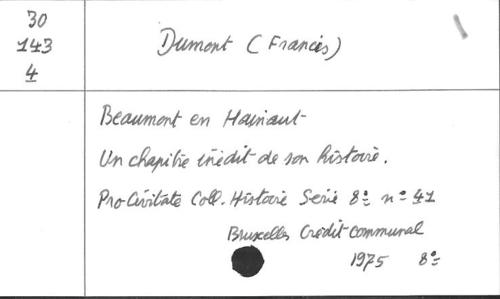 30
143
4
Dumont (Francis)
Beaumont en Hainaut
Un chapitre inédit de son histoire.
Pro Civitate Coll. Histoire Serie 8º nº 41
Bruxelles Crédit communal
1975 8º